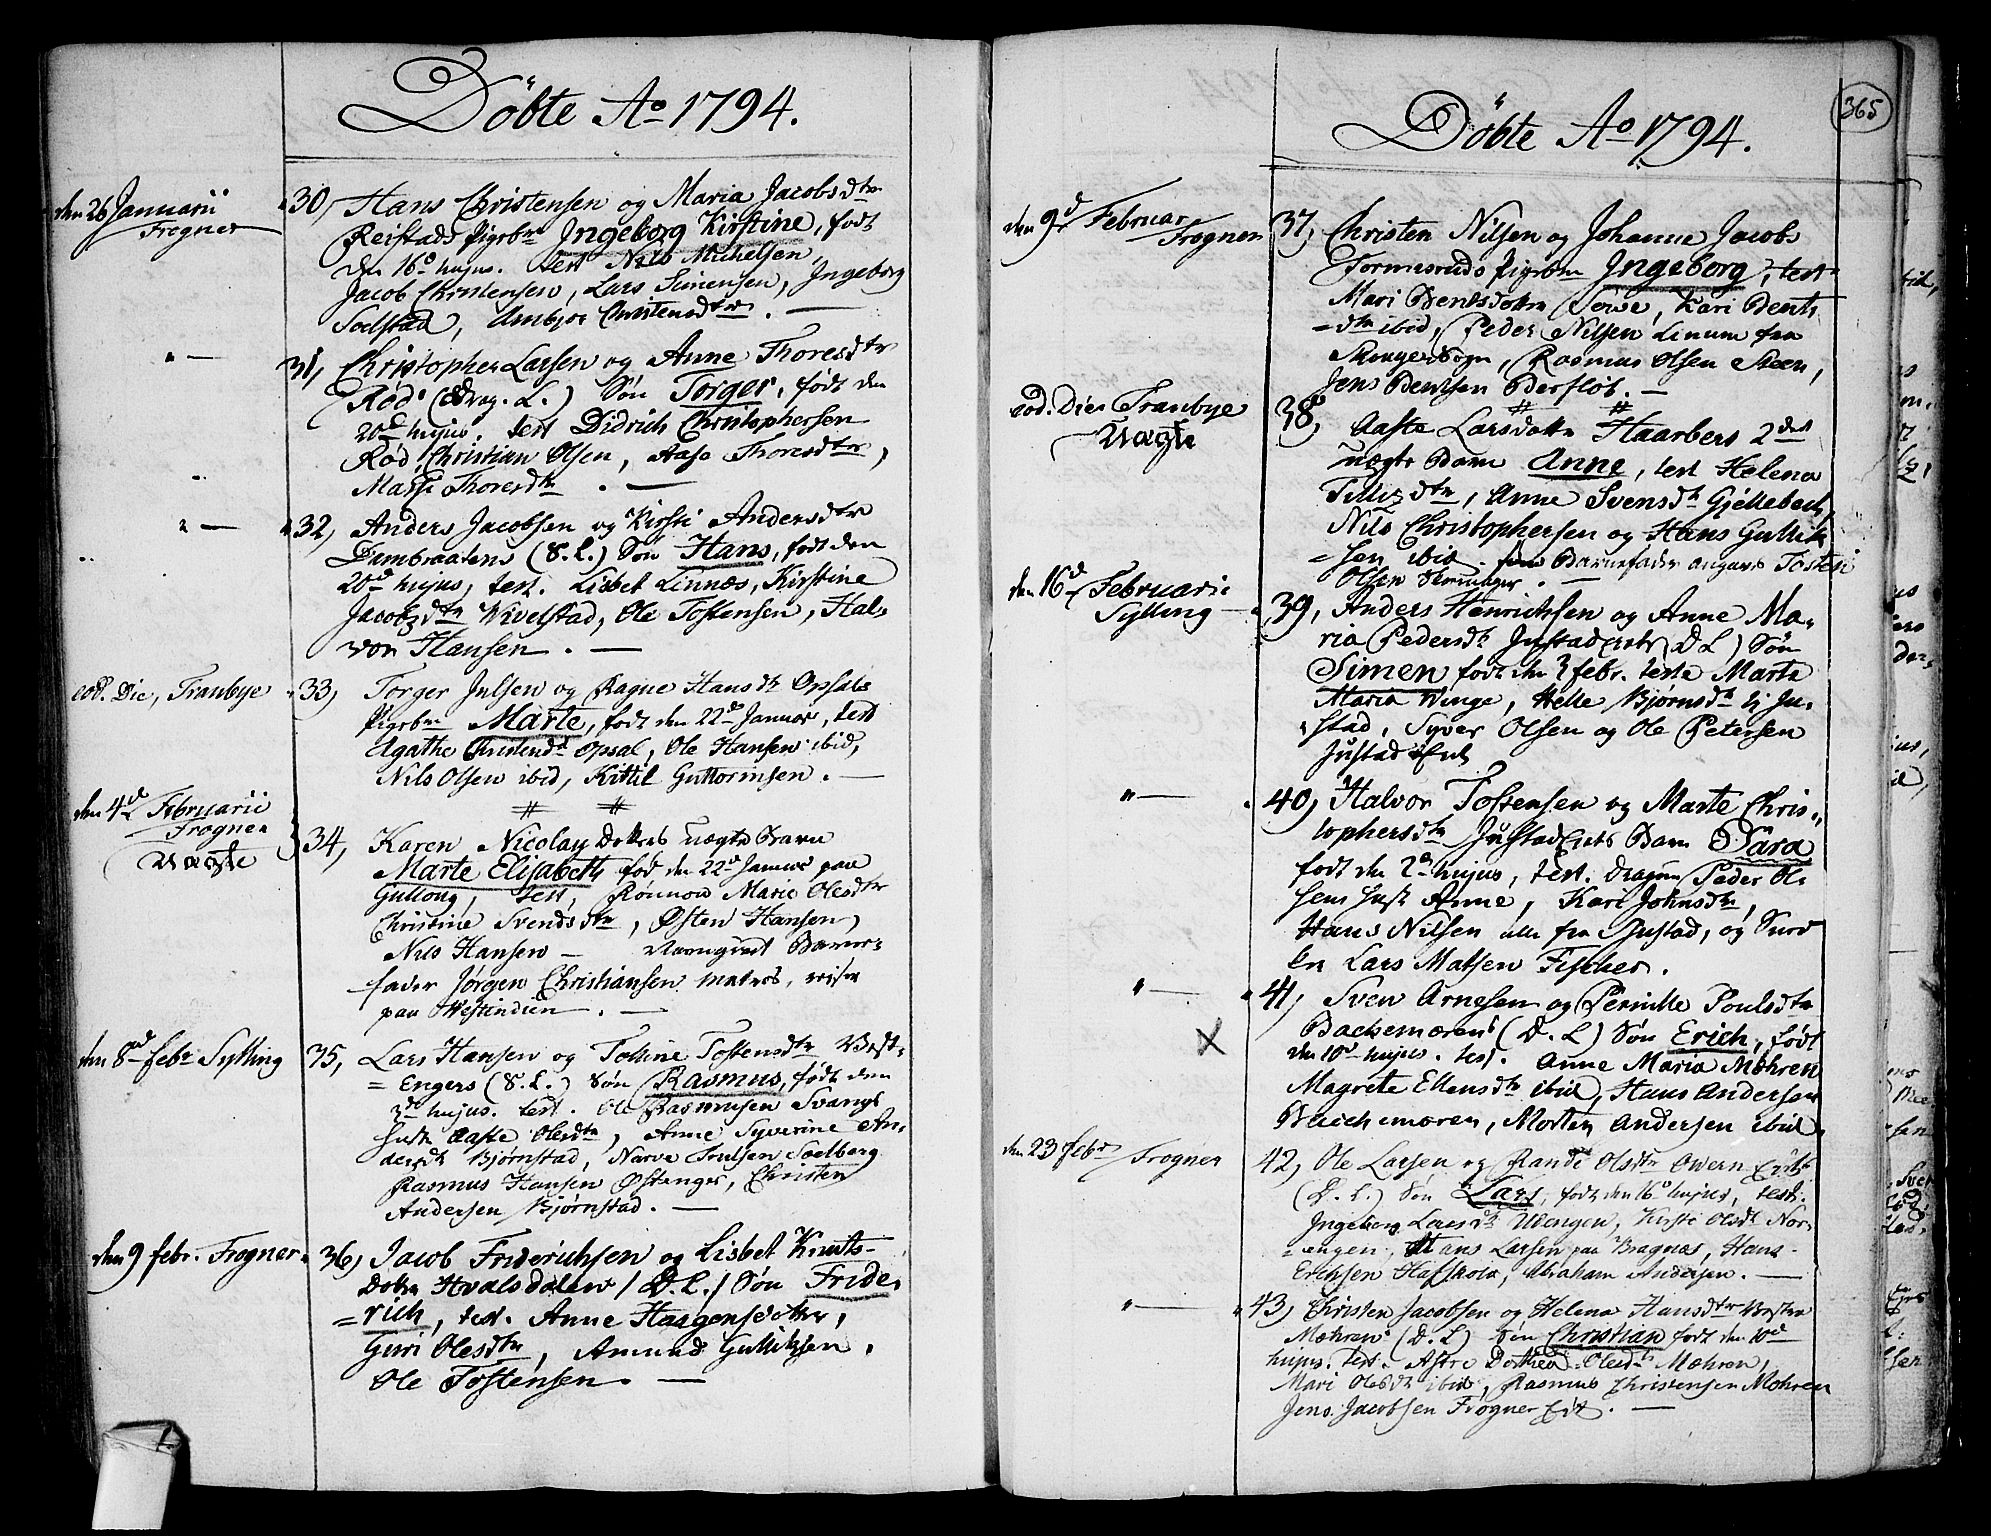 Döbte Ao 1794.
den 26 Januarii
Frogner
30, Hans Christensen og Maria Jacobsdtr
Reistads pigebrn Ingeborg Kirstine, født
den 16d hujus. test Nils Michelsen,
Jacob Christensen, Lars Simensen, Ingeborg
Solstad, Anbjør Christensdtr. —
" — 31, Christopher Larsen og Anne Thoresdtr
Rød (Drag. L.) Søn Torger, født den
20d hujus. test Didrich Christophersen
Rød, Christian Olsen, Aase Thoresdtr,
Massi Thoresdtr. —
" — 32, Anders Jacobsen og Kirsti Andersdtr
Dambraatens (S. L.) Søn Hans, født den
20d hujus, test. Lisbet Linnæs, Kirstine
Jacobsdtr Wivelstad, Ole Tostensen, Hal-
vor Hansen. —
eod. Die, Tranbye 33, Torger Julsen og Ragne Hansdtr Opsals
pigebrn Marte, født den 22d Januar, test
Agathe Christensdtr Opsal, Ole Hansen ibid,
Nils Olsen ibid, Kittil Guttormsen. —
den 4d Februarii
Frogner
Uægte
34, Karen Nicolay Dotters uægte Barn
Marte Elisabeth fød den 22d Januar paa
Gullaug, test, Rønnow Marie Olesdtr
Christine Svendsdtr, Østen Hansen,
Nils Hansen — Navngivet Barne-
fader Jørgen Christiansen matros, reiser
paa Westindien. —
den 8d febr Sylling 35, Lars Hansen og Tolline Tostensdtr Vest-
= Engers (S. L.) Søn Rasmus, født den
3d hujus. test. Ole Rasmusen Svangs
hustr Aaste Olesdtr, Anne Syverine An-
dersdtr Bjørnstad, Narve Poulsen Soelberg
Rasmus Hansen Østenger, Christen
Andersen Bjørnstad. —
den 9 febr. Frogner 36, Jacob Friderichsen og Lisbet Knuts-
Dotter Hvalsdalen / D. L. / Søn Fride-
= rich, test. Anne Haagensdotter,
Guri Olesdtr, Amund Gulliksen,
Ole Tostensen. —
365
Döbte Ao 1794.
den 9d Februar
Frogner
37, Christen Nilsen og Johanne Jacobs
Tormesruds pigebrn Ingeborg, test
Mari Bentsdotter, Kari Bents
= dtr ibid, Peder Nilsen Linum fra
Skouger Sogn, Rasmus Olsen Steen,
Jens Bentsen Berfløt. —
eod. Die Tranbye
Uægte
38, Aaste Larsdotter Haarbers 2det
uægte Barn Anne, test Helena
Tilligsdtr, Anne Svensdtr Gjellebech,
Nils Christophersen og Hans Gullik
= sen ibid. Som Barnefader angaves Tosten
Olsen. —
den 16d Februarii
Sylling
39, Anders Henrichsen og Anne Ma-
ria Pedersdtr Justad (D L) Søn
Simen født den 3 febr. test Marta
Maria Winge, Helle Bjørnsdtr Ju-
stad, Syver Olsen og Ole Petersen
Justad Eiet
" — 40, Halvor Tostensen og Marte Chris-
tophersdtr Justad Eiets Barn Sara
født den 2d hujus, test. dragun Peder Ol-
sens hust Anne, Kari Johnsdtr,
Hans Nilsen alle fra Justad, og
Lars Matsen Fischer.
" — 41, Sven Arnesen og Pernille Poulsdtr
Bachemoren (D. L) Søn Erich, født
den 10d hujus. test. Anne Maria Mæhren
Magrete Ellensdtr ibid, Hans Andersen
Bachemoren, Morten Andersen ibid.
den 23 febr Frogner 42, Ole Larsen og Randi Olsdtr Owern Eiet
(D. L.) Søn Lars, født den 16d hujus, test.
Ingeborg Larsdtr Uvengen, Kirsti Olsdtr Nor-
= engen, Hans Larsen paa Bragnæs, Hans-
Erichsen, Abraham Andersen. —
" — 43, Christen Jacobsen og Helena Hansdtr Vestre
Mæhren (D. L) Søn Christian født den 10d
hujus. test. Astri Dorthea Olesdtr Mæhren,
Mari Olesdtr ibid, Rasmus Christensen Mæhren
Jens Jacobsen Frogner Eiet. —